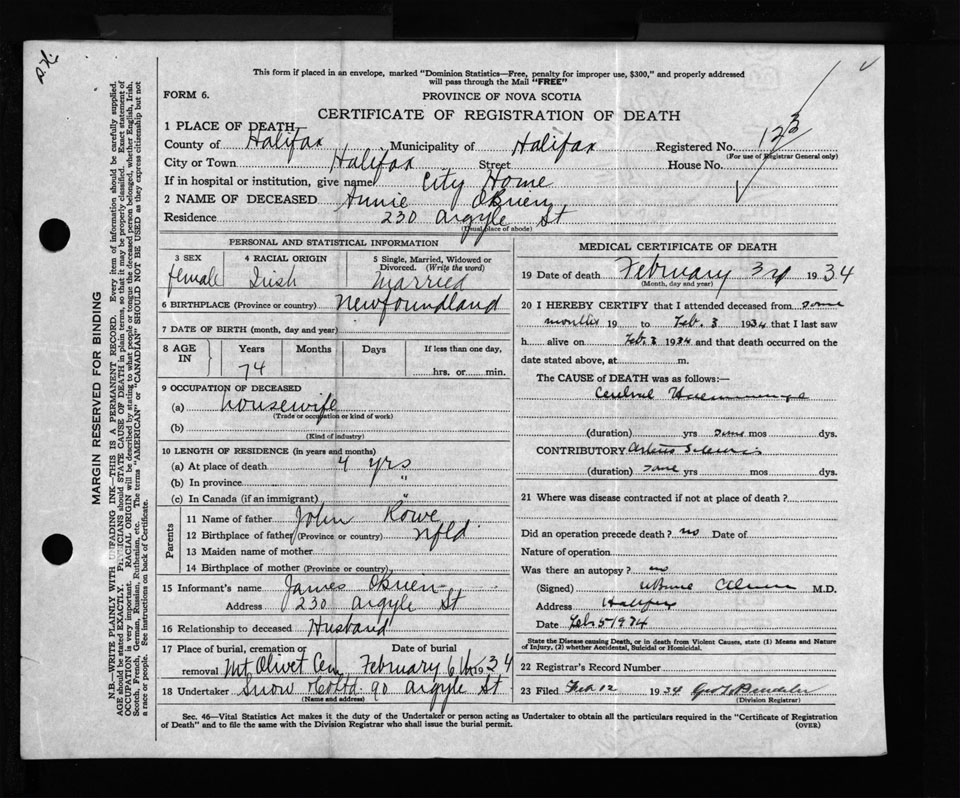 D.X.
This form if placed in an envelope, marked "Dominion Statistics—Free, penalty for improper use, $300," and properly addressed
will pass through the Mail "FREE"
FORM 6.
PROVINCE OF NOVA SCOTIA
CERTIFICATE OF REGISTRATION OF DEATH
1 PLACE OF DEATH
County of Halifax Municipality of Halifax Registered No. 123
(For use of Registrar General only)
City or Town Halifax Street House No.
If in hospital or institution, give name City Home
2 NAME OF DECEASED Annie OBrien
Residence 230 Argyle St
(Usual place of abode)
PERSONAL AND STATISTICAL INFORMATION
3 SEX 4 RACIAL ORIGIN 5 Single, Married, Widowed or
Divorced. (Write the word)
female Irish Married
6 BIRTHPLACE (Province or country) Newfoundland
7 DATE OF BIRTH (month, day and year)
8 AGE IN Years Months Days If less than one day,
74 hrs. or min.
9 OCCUPATION OF DECEASED
(a) housewife
(Trade or occupation or kind of work)
(b)
(Kind of industry)
10 LENGTH OF RESIDENCE (in years and months)
(a) At place of death 4 yrs
(b) In province "
(c) In Canada (if an immigrant) "
Parents
11 Name of father John Rowe
12 Birthplace of father (Province or country) Nfld
13 Maiden name of mother
14 Birthplace of mother (Province or country)
15 Informant's name James OBrien
Address 230 Argyle St
16 Relationship to deceased Husband
17 Place of burial, cremation or Date of burial
removal Mt Olivet Cem February 6th 1934
18 Undertaker Snow & Co Ltd. 90 Argyle St
(Name and address)
MEDICAL CERTIFICATE OF DEATH
19 Date of death February 3rd 1934
(Month, day and year)
20 I HEREBY CERTIFY that I attended deceased from some
months 19 to Feb. 3 1934 that I last saw
h alive on Feb 3 1934 and that death occurred on the
date stated above, at m.
The CAUSE of DEATH was as follows:—
Cerebral Haemorrhage
(duration) yrs some mos dys.
CONTRIBUTORY Arterio Sclerosis
(duration) some yrs mos dys.
21 Where was disease contracted if not at place of death?
Did an operation precede death? no Date of
Nature of operation
Was there an autopsy? no
(Signed) M.D.
Address Halifax
Date Feb 5 1934
State the Disease causing Death, or in death from Violent Causes, state (1) Means and Nature
of Injury, (2) whether Accidental, Suicidal or Homicidal.
22 Registrar's Record Number
23 Filed Feb 12 1934 Geo
(Division Registrar)
Sec. 46—Vital Statistics Act makes it the duty of the Undertaker or person acting as Undertaker to obtain all the particulars required in the "Certificate of Registration
of Death" and to file the same with the Division Registrar who shall issue the burial permit. (OVER)
MARGIN RESERVED FOR BINDING
N.B.—WRITE PLAINLY WITH UNFADING INK—THIS IS A PERMANENT RECORD. Every item of information should be carefully supplied.
AGE should be stated EXACTLY. PHYSICIANS should STATE CAUSE OF DEATH in plain terms, so that it may be properly classified. Exact statement of
OCCUPATION is very important. RACIAL ORIGIN will be described by stating to what people or tongue the deceased person belonged, whether English, Irish,
Scotch, French, German, Russian, Ruthenian, etc. The terms "AMERICAN" or "CANADIAN" SHOULD NOT BE USED as they express citizenship but not
a race or people. See instructions on back of Certificate.